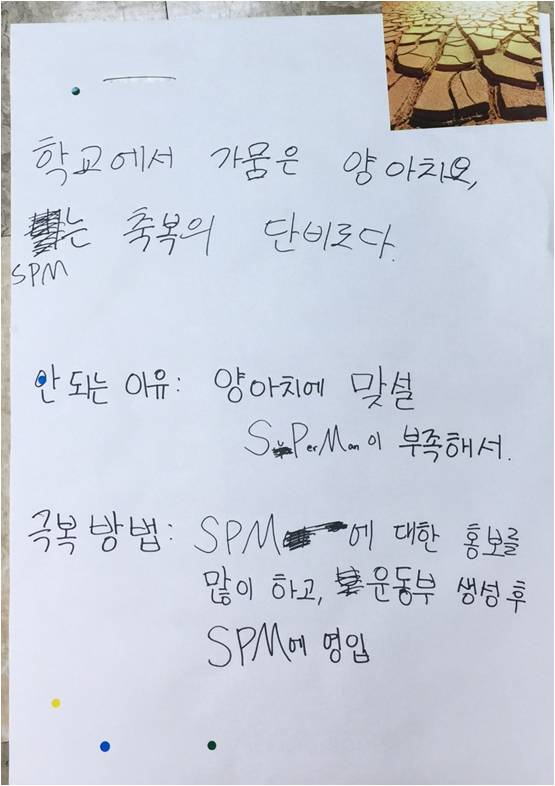 학교에서 가뭄은 양아치요,
는 축복의 단비로다.
SPM
안 되는 이유: 양아치에 맞설
SuPerMan이 부족해서.
극복 방법: SPM에 대한 홍보를
많이 하고, 운동부 생성 후
SPM에 영입